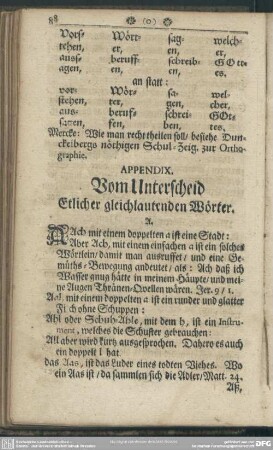 88 (o)
Vors- Wört- sag- welch-
tehen, er, en, er,
auss- beruff- schreib- GOtt-
agen, en, en, es.
an statt:
vor- Wör- sa- wel-
stehen, ter, gen, cher,
aus- beruf- schrei- GOt-
sagen, fen, ben, tes.
Mercke: Wie man recht theilen soll/ besiehe Dun-
ckelbergs nöthigen Schul-Zeig. zur Ortho-
graphie.
APPENDIX.
Vom Unterscheid
Etlicher gleichlautenden Wörter.
A.
AAch mit einem doppelten a ist eine Stadt:
Aber Ach, mit einem einfachen a ist ein solches
Wörtlein/ damit man ausruffet/ und eine Ge-
müths-Bewegung andeutet/ als: Ach daß ich
Wasser gnug hätte in meinem Häupte/ und mei-
ne Augen Thränen-Qvellen wären. Jer. 9/1.
Aal, mit einem doppelten a ist ein runder und glatter
Fisch ohne Schuppen:
Ahl oder Schuh-Ahle, mit dem h, ist ein Instru-
ment, welches die Schuster gebrauchen:
All aber wird kurtz ausgesprochen. Dahero es auch
ein doppelt l hat.
das Aas, ist das Luder eines todten Viehes. Wo
ein Aas ist/ da sammlen sich die Adler/ Matt. 24.
Aß,